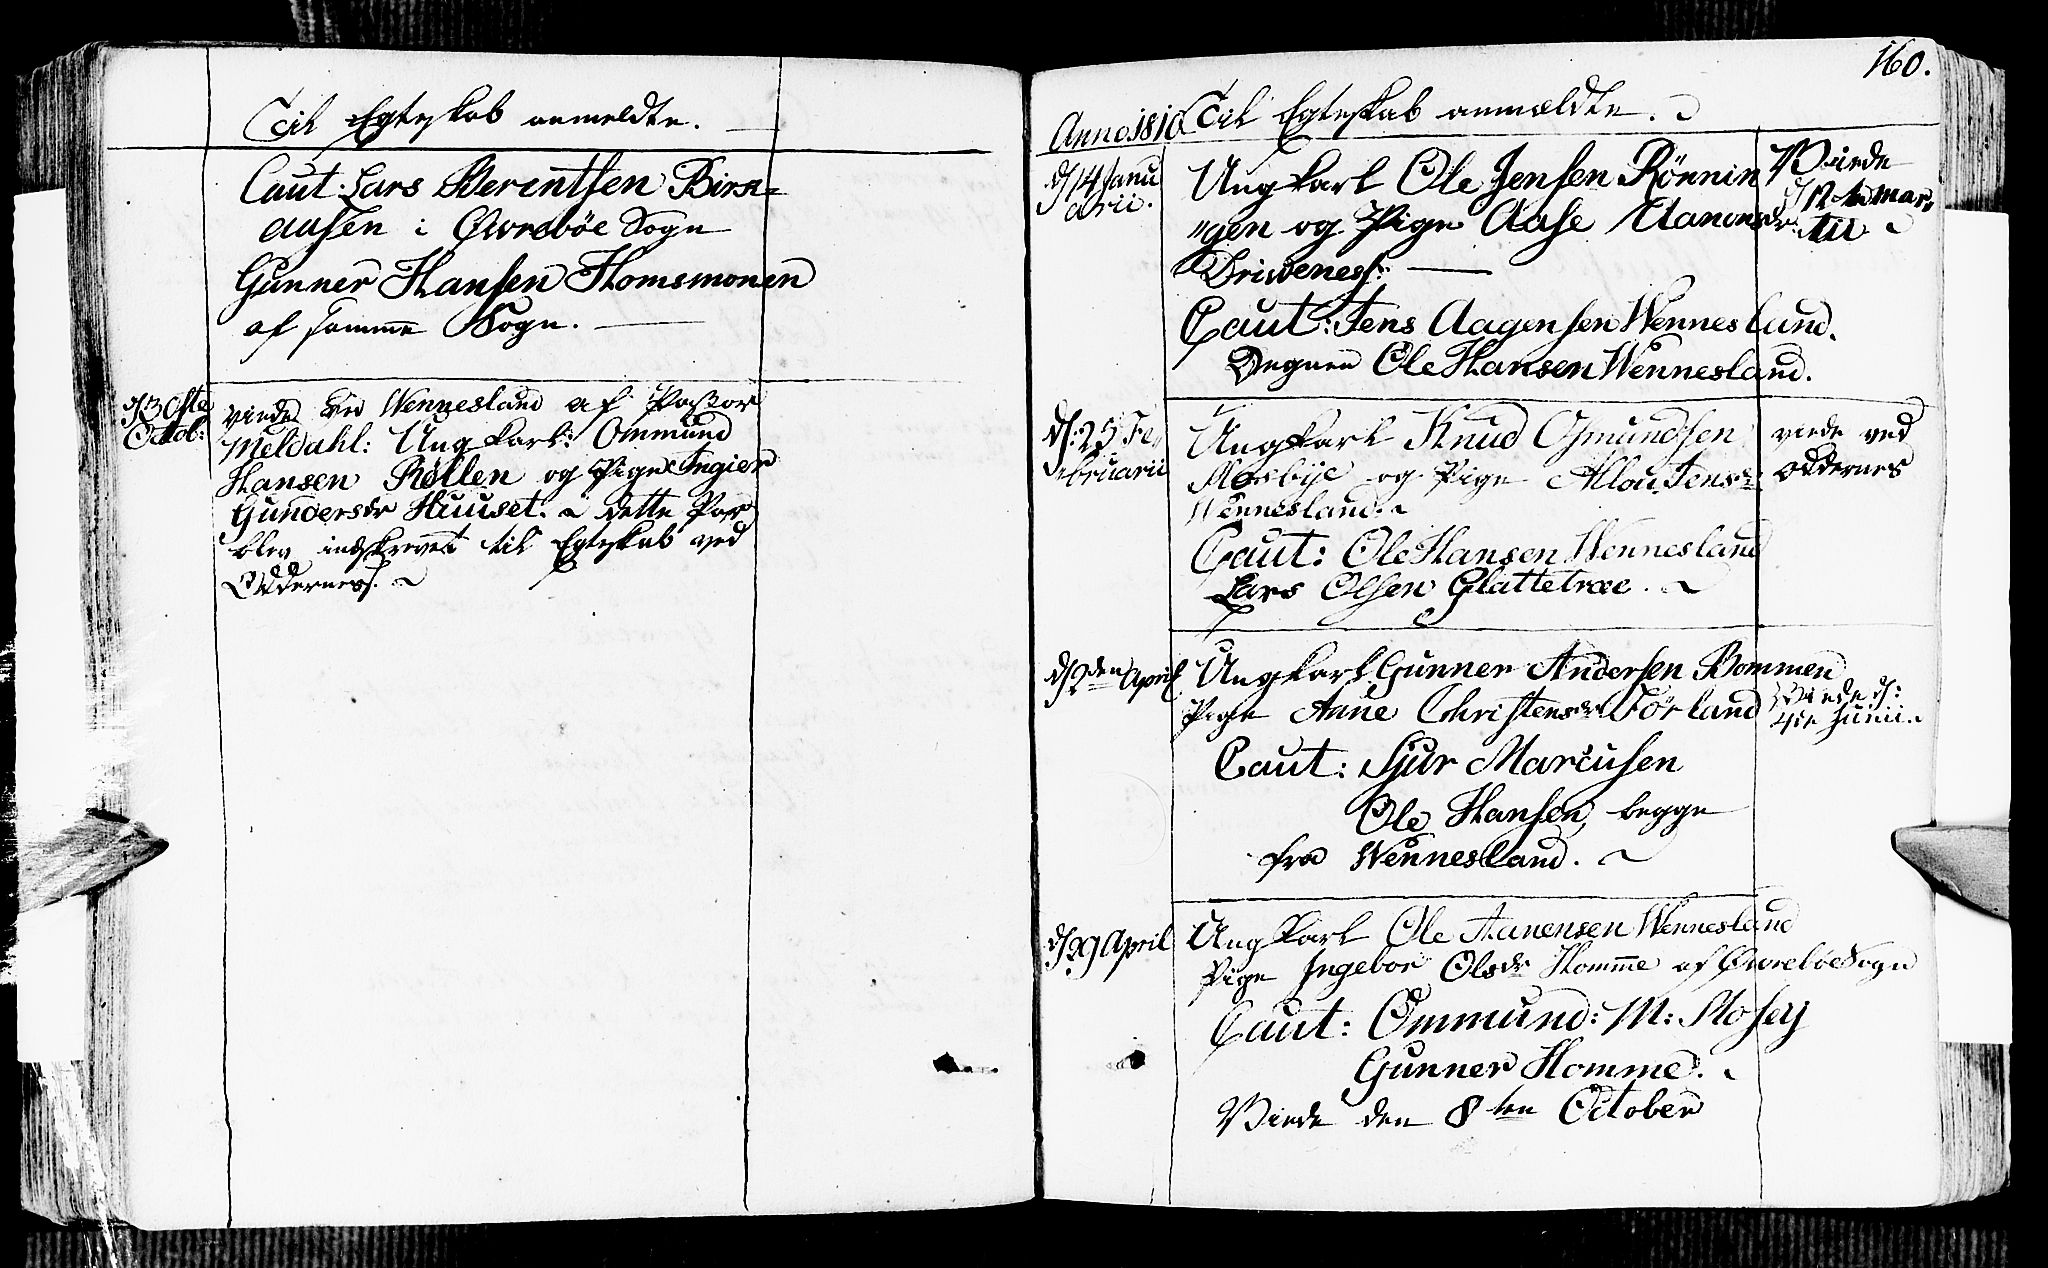 Til Egteskab anmeldte.
Caut: Lars Berentsen Birke-
aasen i Øvrebøe Sogn
Gunner Hansen Homsmonen
af samme Sogn.
d 30te
Octob:
viede ved Wennesland af Pastor
Meldahl: Ungkarl: Ommund
Hansen Røllen og Pige Ingier
Gundersdr Huuset. dette Par
blev indskrevet til Egteskab ved
Oddernes.
160.
Anno 1810 Til Egteskab anmældte.
d 14 Janu
arii.
Ungkarl Ole Jensen Rönnin
gen og Pige Aase Aanonsdr
Drivenes.
Caut: Jens Aagensen Wennesland.
Degnen Ole Hansen Wennesland.
Viede
d 12te Mar-
tii
d: 25 Fe
bruarii
Ungkarl Knud Osmundsen
Mosbye og Pige Allou Jensdr
Wennesland.
Caut: Ole Hansen Wennesland
Lars Olsen Glattetræe.
viede ved
Oddernes
d 2den April
Ungkarl Gunner Andersen Bommen
Pige Anne Christensdr Förland
Caut: Sjur Marcusen
Ole Hansen, begge
fra Wennesland.
Viede d:
Junii
d 29 April
Ungkarl Ole Aanensen Wennesland
Pige Ingebor Olsdr Homme af Øvrebøe Sogn
Caut: Ommund: M: Mosey
Gunner Homme.
Viede den 8ten October